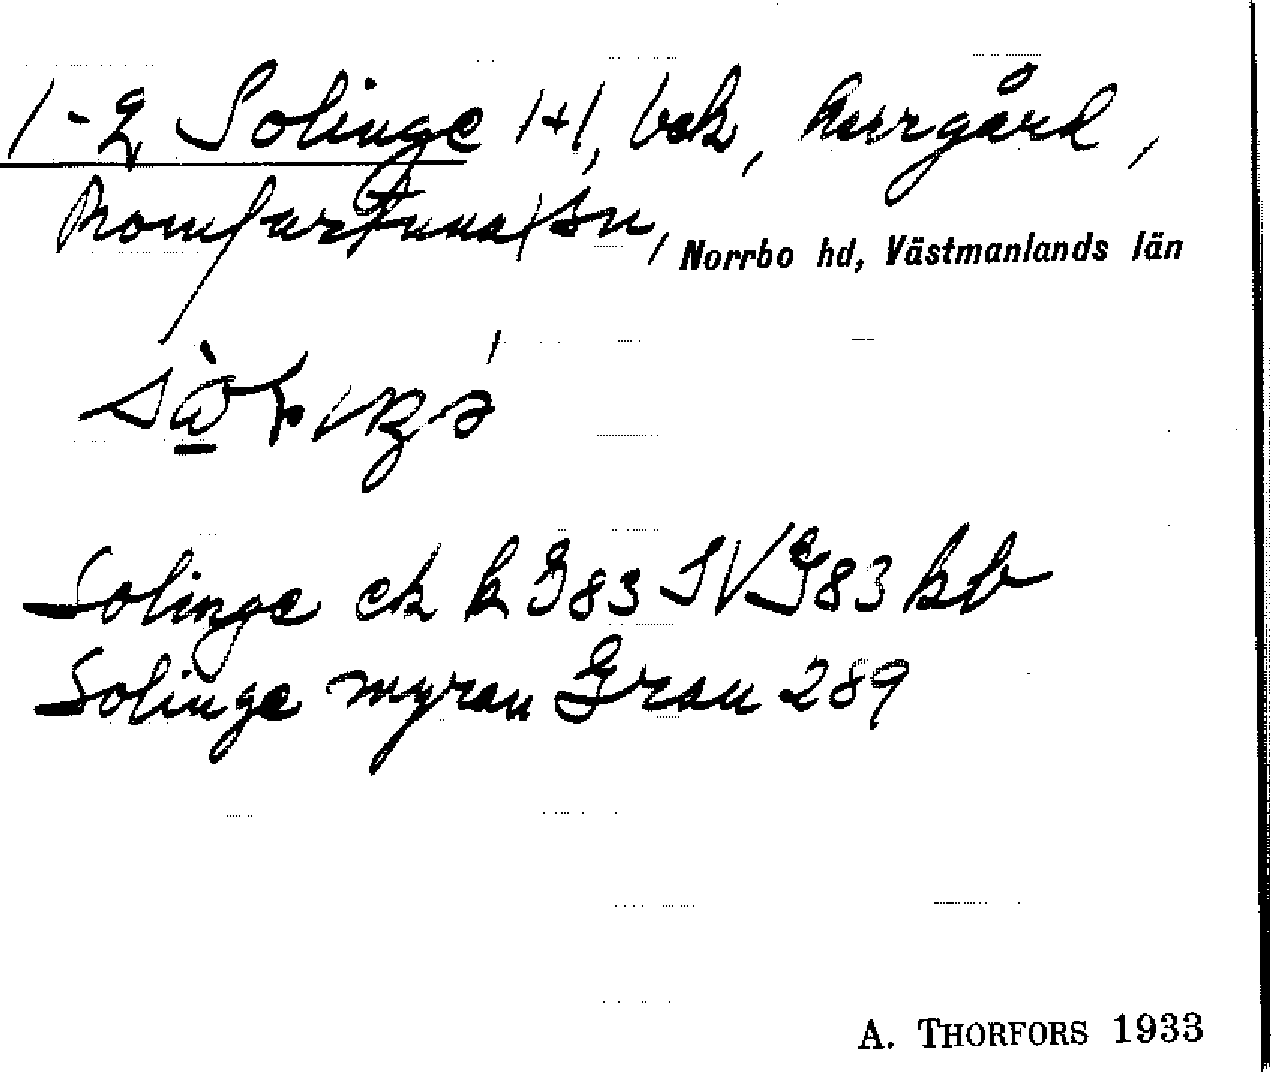 1-2 Solinge 1+1, bek, herrgård,
Romfartuna sn, Norrbo hd, Västmanlands län
Solinge ek k J83 SV J83 kb
Solinge myran Gran 289
A. THORFORS 1933